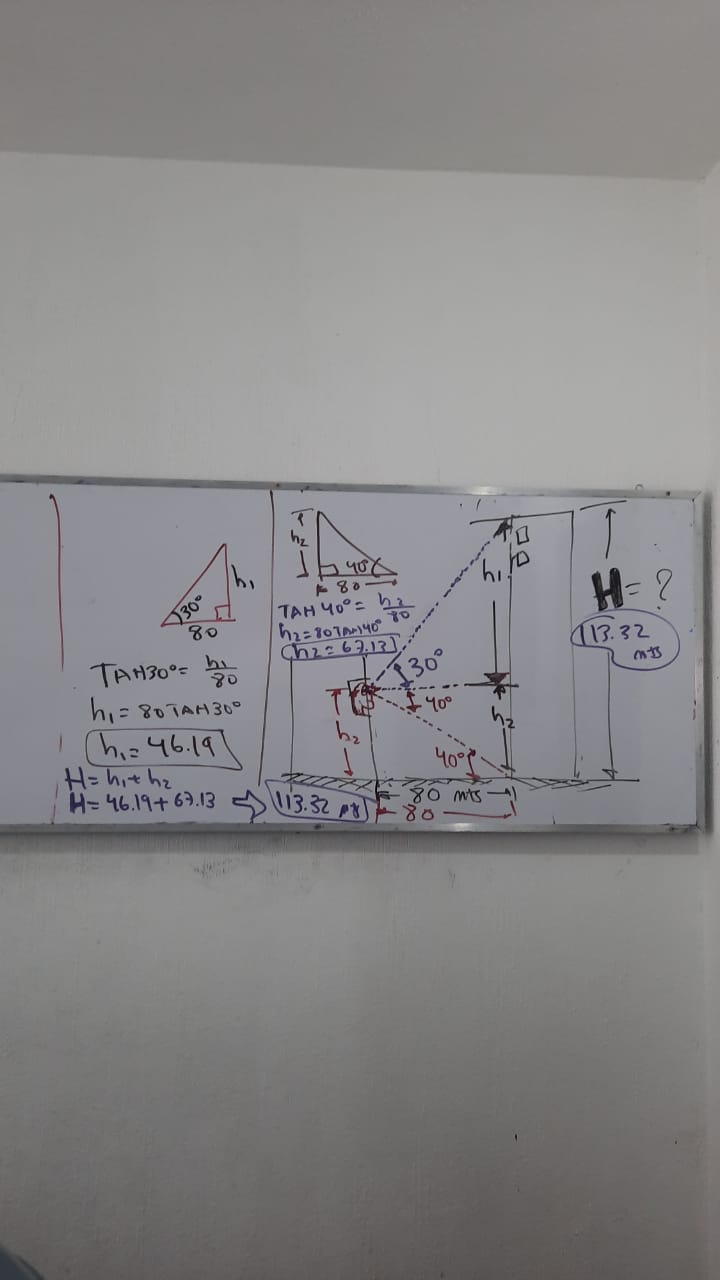 h₁
30°
80
TAN30° = h₁/80
h₁ = 80TAN30°
h₁ = 46.19
H = h₁ + h₂
H = 46.19 + 67.13 ⇒ 113.32
h₂
40°
80
TAN 40° = h₂/80
h₂ = 80TAN40°
h₂ = 67.13
h₁
30°
40°
h₂
h₂
40°
80 mts
80
H = ?
113.32
mts